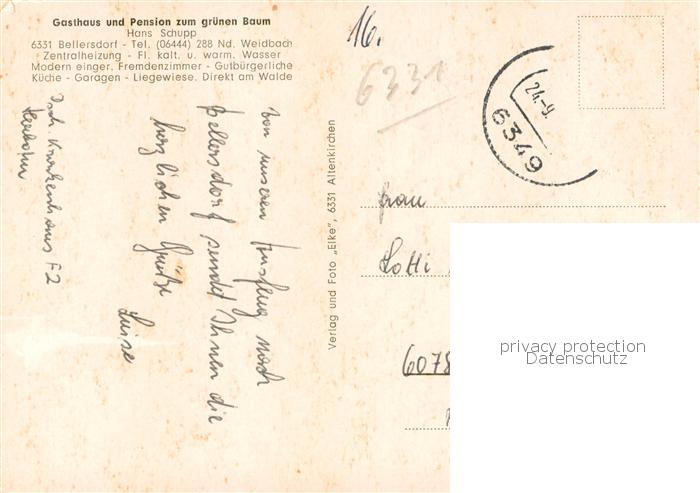 Gasthaus und Pension zum grünen Baum
Hans Schupp
6331 Bellersdorf - Tel. (06444) 288 Nd. Weidbach
Zentralheizung - Fl. kalt. u. warm. Wasser
Modern einger. Fremdenzimmer - Gutbürgerliche
Küche - Garagen - Liegewiese. Direkt am Walde
16.
6331
24.-9.
6349
Von unserem Ausflug nach
Bellersdorf sendet Ihnen die
herzlichen Grüße
Luise
Krankenhaus F2
Verlag und Foto „Elke", 6331 Altenkirchen
Frau
Lotti
6078
privacy protection
Datenschutz